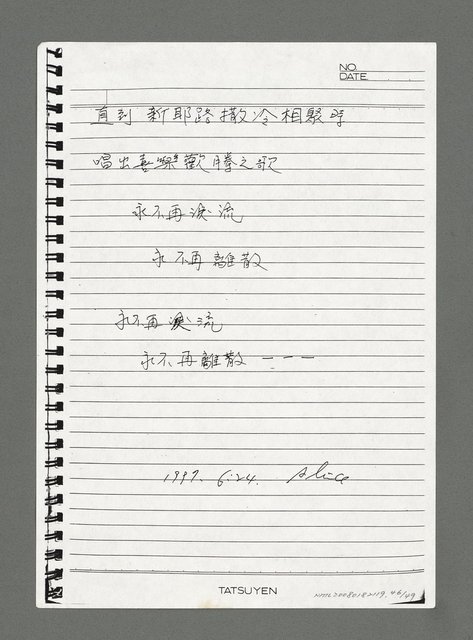 NO.
DATE
直到新耶路撒冷相聚時
唱出喜樂歡騰之歌
永不再淚流
永不再離散
永不再淚流
永不再離散－－－
1997. 6.24. Alice
TATSUYEN
NML20080182119.46/49